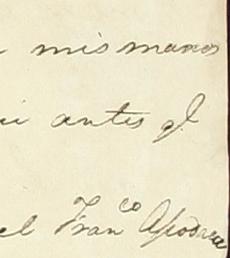 mis manos
antes q.e
el Fran.co Apodaca